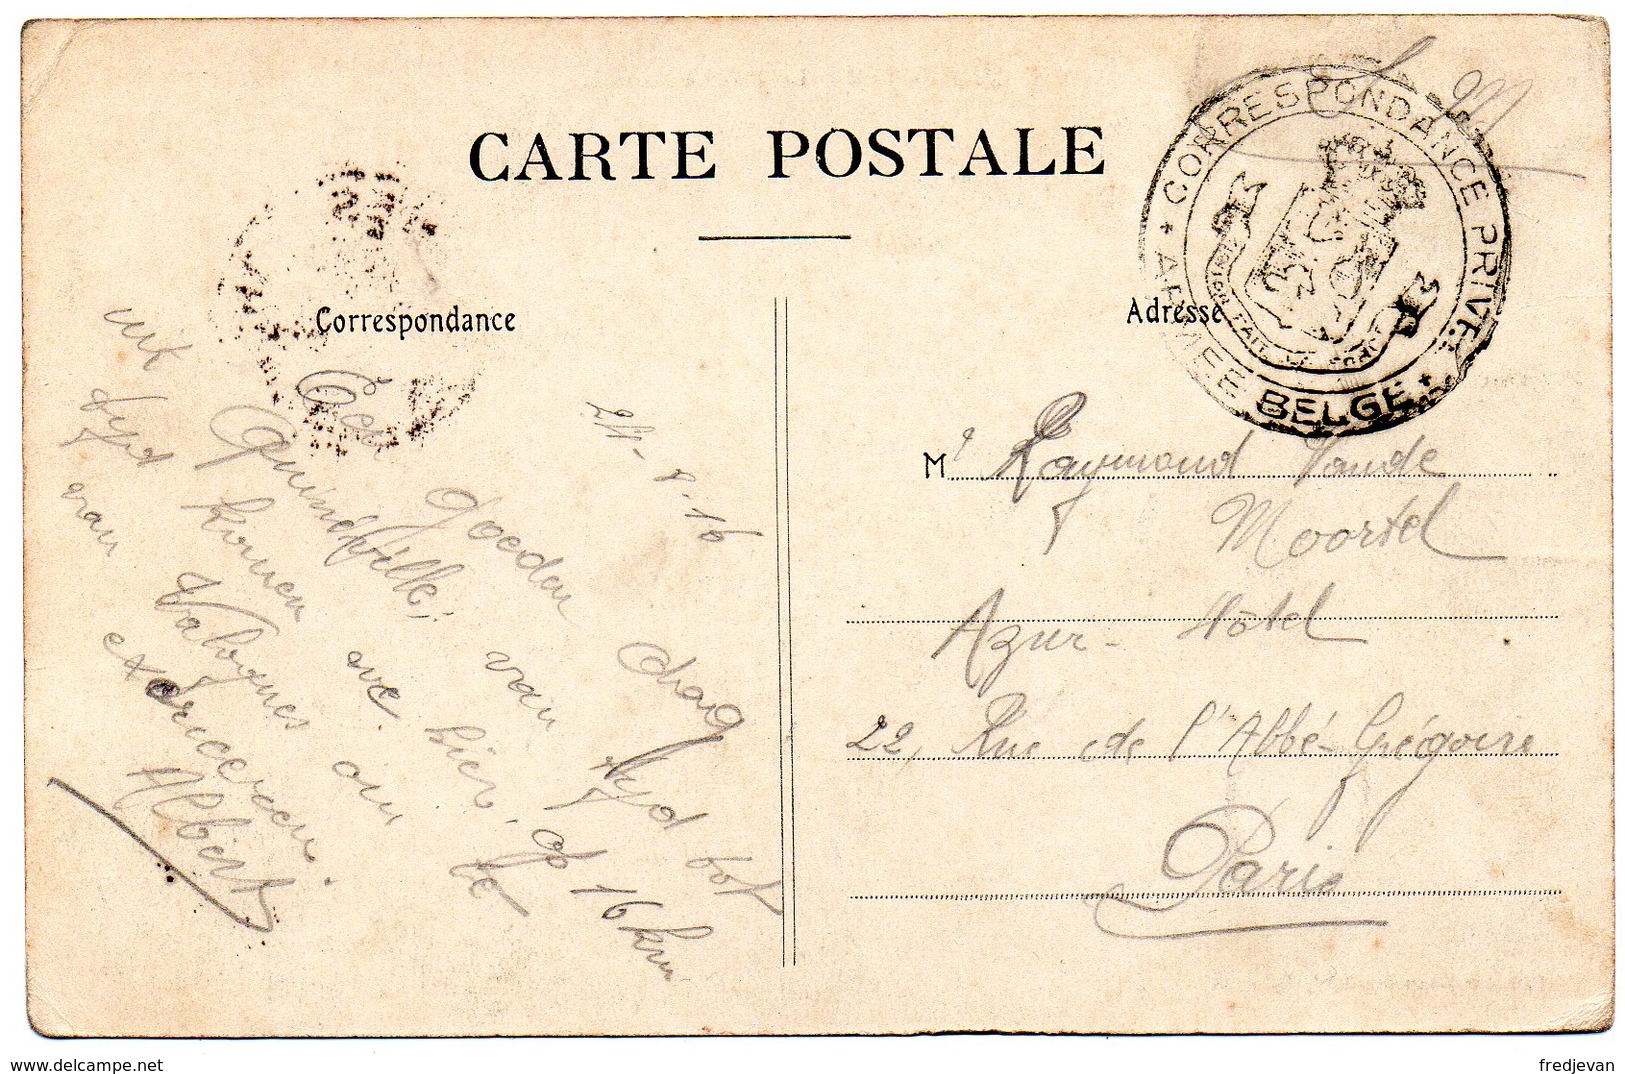 CARTE POSTALE
Correspondance
Adresse
CORRESPONDANCE PRIVÉE
* ARMÉE BELGE *
L'UNION FAIT LA FORCE
24-8-16
Een goeden dag
uit Quinéville; van tyd tot
tyd komen we hier, op 16 km
van Valognes om te
exerceeren.
Albert
Mr Raymond Vande
Moortel
Azur-Hôtel
22, Rue de l'Abbé-Grégoire
Paris
delcampe.net
fredjevan